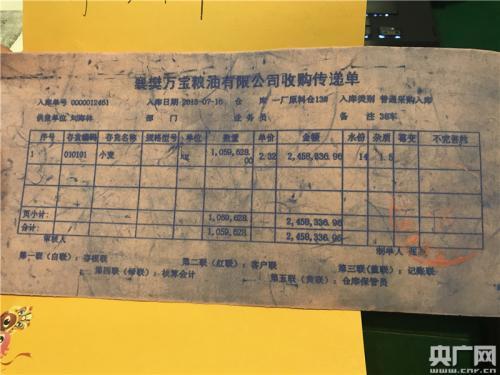 襄樊万宝粮油有限公司收购传递单
入库单号 0000012461 入库日期 2015-07-16 仓 库 一厂原料仓138 入库类别 普通采购入库
供货单位 刘海林 部 门 业务员 备 注 36车
序号 存货编码 存货名称 规格型号 单位 数量 单价 金额 水份 杂质 霉变 不完善粒
1 010101 小麦 kg 1,059,628.00 2.32 2,458,336.96 14 1.5
页小计: 1,059,628. 2,458,336.96
合计: 1,059,628. 2,458,336.96
审核人 制单人
第一联(白联):存根联 第二联(红联):客户联 第三联(蓝联):记账联
第四联(绿联):核算会计 第五联(黄联):仓库保管员
央广网
www.cnr.cn